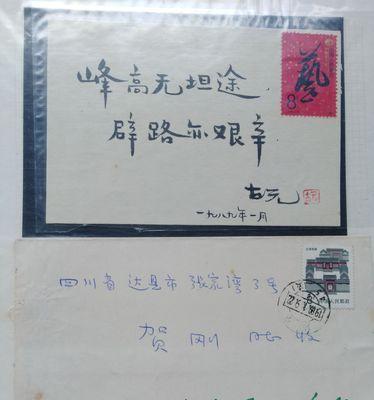 峰高无坦途
辟路亦艰辛
古元
一九八九年一月
艺
8
四川省达县市张家湾3号
贺刚 收
人民邮政